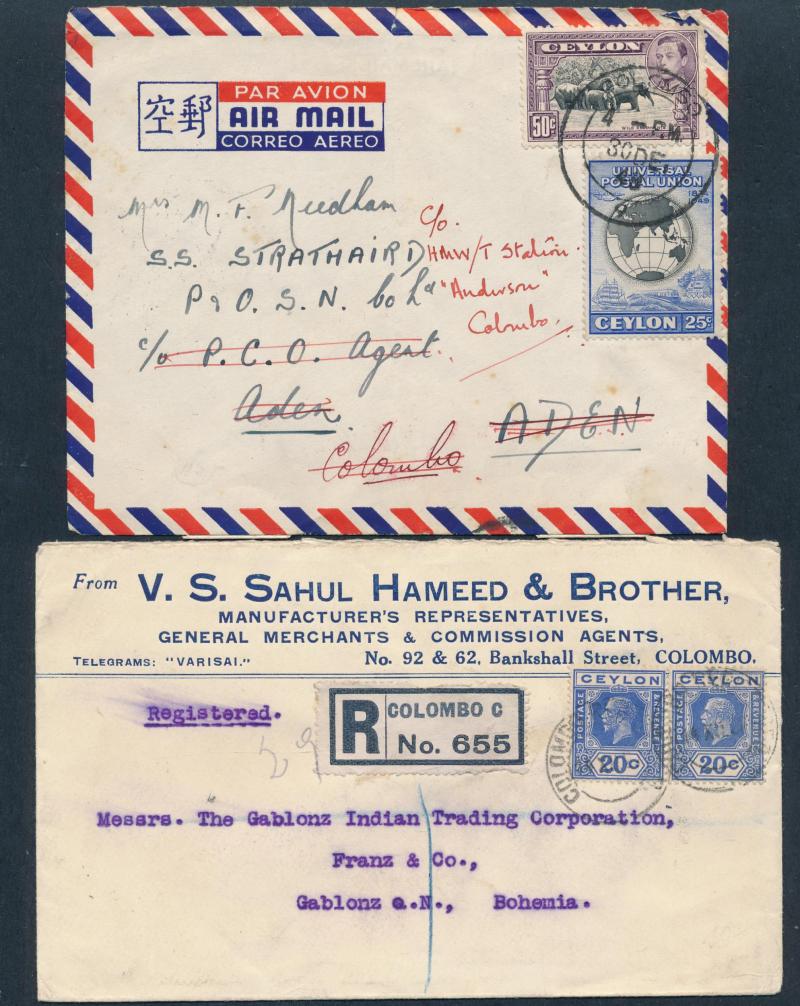 空郵
PAR AVION
AIR MAIL
CORREO AEREO
CEYLON
50c
COLOMBO
4 - P.M.
30 DE
49
UNIVERSAL
POSTAL UNION
1874
1949
CEYLON 25c
Mrs M. F. Needham
S.S. STRATHAIRD
P & O. S. N. Co Ld
c/o P.C.O. Agent.
Aden
ADEN
Colombo
c/o
HMW/T Station.
"Anderson"
Colombo.
From V. S. SAHUL HAMEED & BROTHER,
MANUFACTURER'S REPRESENTATIVES,
GENERAL MERCHANTS & COMMISSION AGENTS,
TELEGRAMS: "VARISAI." No. 92 & 62, Bankshall Street, COLOMBO.
Registered.
R COLOMBO C
No. 655
CEYLON
POSTAGE
& REVENUE
20c
CEYLON
POSTAGE
& REVENUE
20c
COLOMBO
Messrs. The Gablonz Indian Trading Corporation,
Franz & Co.,
Gablonz a.N., Bohemia.